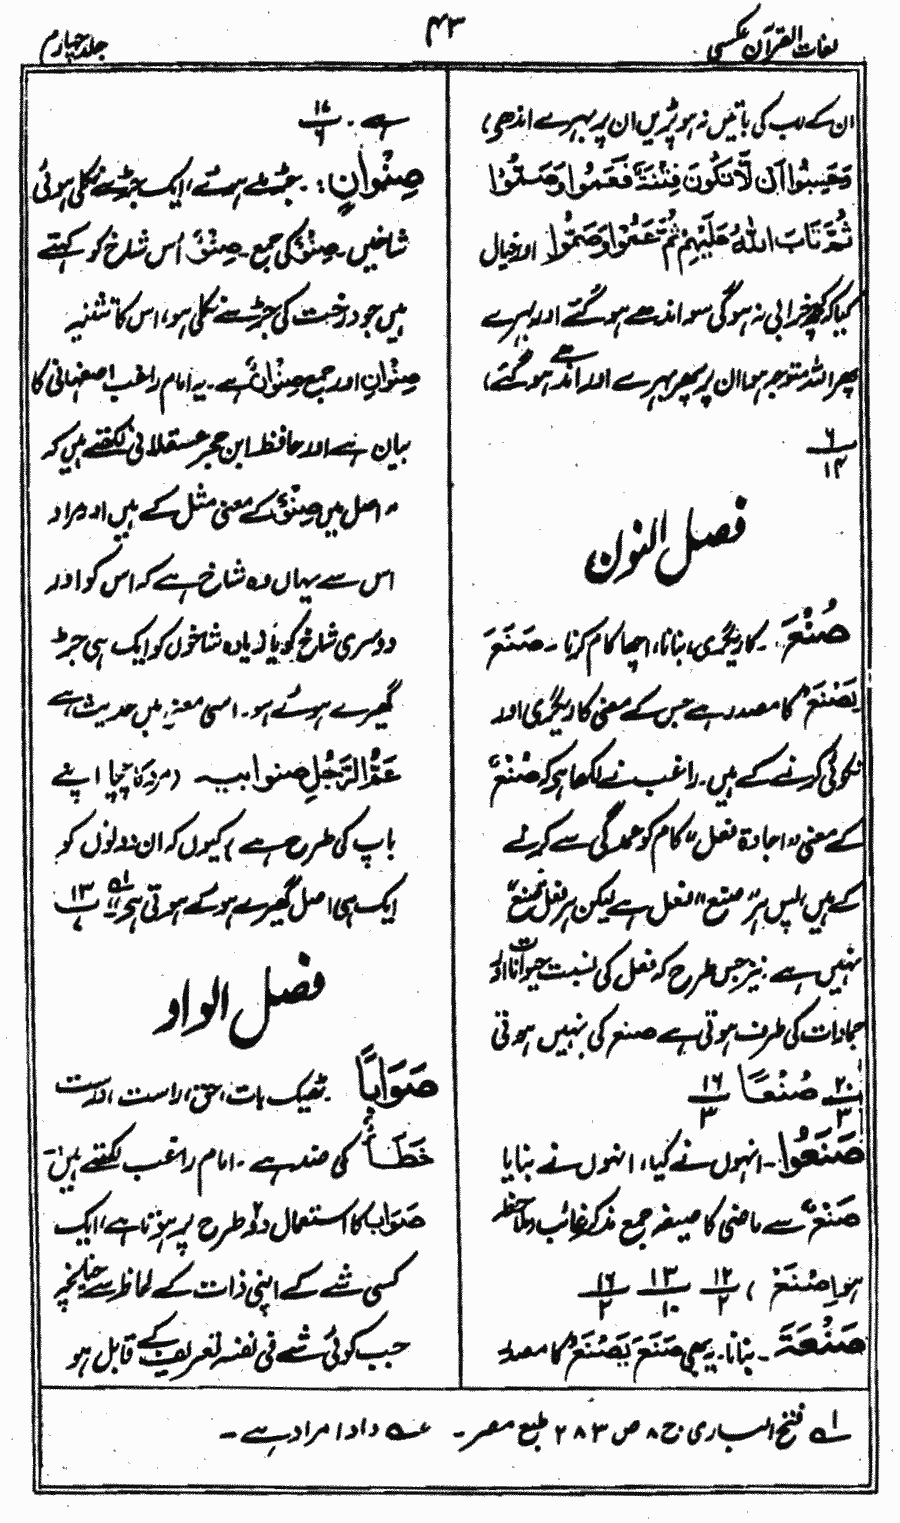 لغات القرآن عکسی
۴۳
جلد چہارم
ان کے لب کی باتیں نہ ہو پڑیں ان پر بہرے اندھی،
وَحَسِبُوْا اَنْ لَّا تَكُوْنَ فِتْنَةٌ فَعَمُوْا وَصَمُّوْا
ثُمَّ تَابَ اللّٰهُ عَلَيْهِمْ ثُمَّ عَمُوْا وَصَمُّوْا اور خیال
کیا کہ کچھ خرابی نہ ہوگی سو اندھے ہو گئے اور بہرے
پھر اللہ متوجہ ہوا ان پر پھر بہرے اور اندھے ہو گئے،
۶
۱۴
فصل النون
صُنْعَ ۔ کاریگری، بنانا، اچھا کام کرنا ۔ صَنَعَ
يَصْنَعُ کا مصدر ہے جس کے معنی کاریگری اور
نکوئی کرنے کے ہیں۔ راغب نے لکھا ہے کہ صُنْعٌ
کے معنی "اجادۃ فعل" کام کو عمدگی سے کرنے
کے ہیں پس ہر "صنع" فعل ہے لیکن ہر فعل صنع
نہیں ہے۔ نیز جس طرح کہ فعل کی نسبت حیوانات اور
جمادات کی طرف ہوتی ہے صنع کی نہیں ہوتی
۲۰
۳
صُنْعًا
۱۶
۳
صَنَعُوْا ۔ انہوں نے کیا، انہوں نے بنایا
صَنْعٌ سے ماضی کا صیغہ جمع مذکر غائب (ملاحظہ
ہو صَنَعَ)
۱۲
۲
۱۳
۱۰
۱۶
۲
صَنْعَةَ ۔ بنانا۔ یہ بھی صَنَعَ يَصْنَعُ کا مصدر
ہے ۔
۱۷
۶
صِنْوَانٌ: ۔ جڑ سے ملے ہوئے، ایک جڑ سے نکلی ہوئی
شاخیں۔ صِنْوٌ کی جمع ۔ صِنْوٌ اُس شاخ کو کہتے
ہیں جو درخت کی جڑ سے نکلی ہو، اس کا تثنیہ
صِنْوَانِ اور جمع صِنْوَانٌ ہے ۔ یہ امام راغب اصفہانی کا
بیان ہے اور حافظ ابن حجر عسقلانی لکھتے ہیں کہ
" اصل میں صِنْوٌ کے معنی مثل کے ہیں اور مراد
اس سے یہاں وہ شاخ ہے کہ اس کو اور
دوسری شاخ کو یا زیادہ شاخوں کو ایک ہی جڑ
گھیرے ہوئے ہو۔ اسی معنی میں حدیث ہے
عَمُّ الرَّجُلِ صنو ابیہ ۔ (مرد کا چچا اپنے
باپ کی طرح ہے) کیوں کہ ان دونوں کو
ایک ہی اصل گھیرے ہو کے ہوتی ہے" ۔ ۵۱
۱۳
۷
فصل الواو
صَوَابًا ۔ ٹھیک بات، حق، راست، درست
خَطَأٌ کی ضد ہے ۔ امام راغب لکھتے ہیں ۔
صَوَاب کا استعمال دو طرح پر ہوتا ہے، ایک
کسی شے کے اپنی ذات کے لحاظ سے چنانچہ
جب کوئی شے فی نفسہ تعریف کے قابل ہو
۵۱ فتح الباری ج ۸ ص ۲۸۳ طبع مصر ۔ عہ دادا مراد ہے ۔